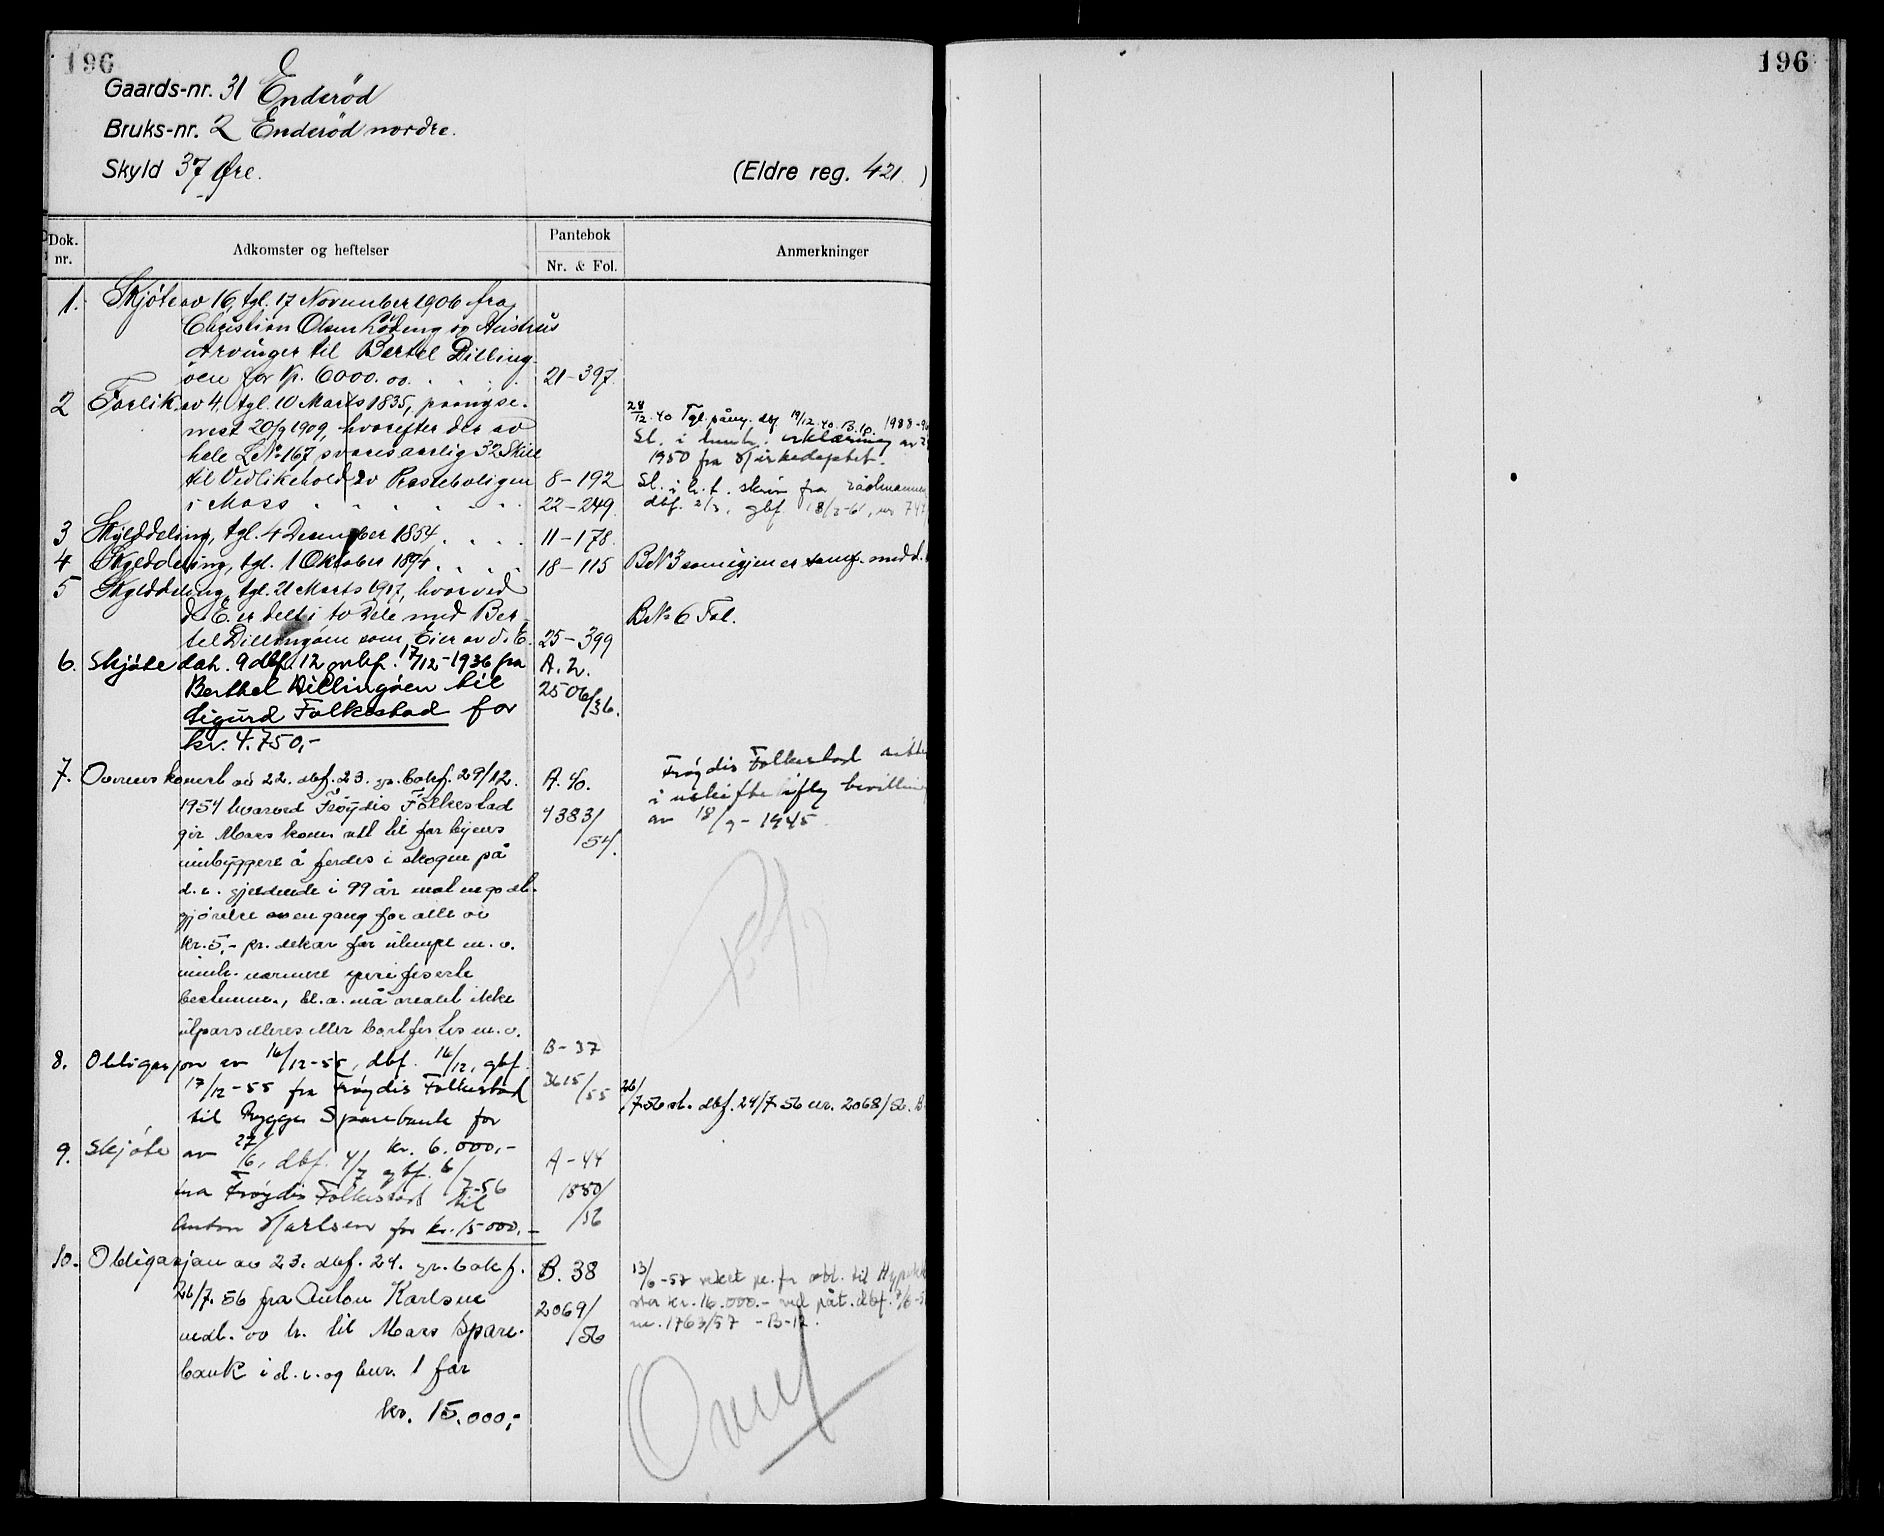 196
Gaards-nr. 31 Enderöd
Bruks-nr. 2 Enderöd nordre.
Skyld 37 Øre.
(Eldre reg. 421 )
Dok. nr.
Adkomster og heftelser
Pantebok
Nr. & Fol.
Anmerkninger
1. Skjöte av 16, tgl. 17 November 1906 fra
Christian Olsen og
Arvinger til Bertel Dilling-
öen for Kr. 6000.00. 21-397.
2 Forlik av 4, tgl. 10 Marts 1835,
20/9 1909, hvorefter der av
hele L.No 167 svares aarlig 32 Skill
til Vedlikehold av Presteboligen 8-192
i Moss 22-249.
28/12.40 Tgl. 19/12.40. B.10. 1988-
Sl. i henh. erklæring av
1950 fra Kirkedeptet.
Sl. i h.t. skriv fra rådmannen
dbf. 2/3, gbf.
3 Skylddeling, tgl. 4 December 1854. 11-178.
4 Skylddeling, tgl. 1 Oktober 1894. 18-115 BNo 3 som igjen er med d.
5 Skylddeling, tgl. 21 Marts 1917, hvorved
d. E. er delt i to Dele med Ber-
tel Dillingöen som Eier av d. E. 25-399
BNo 6 Fol.
6. Skjöte dat. 9 dbf. 12 grbf. 17/12-1936 fra A. 2.
Berthel Dillingöen til 2506/36.
Sigurd Folkestad for
kr. 4.750,-
7. Overenskomst av 22. dbf. 23. gr.bokf. 29/12. A. 40.
1954 hvorved Fröydis Folkestad 4383/54.
gir Moss kom. rett til for byens
innbyggere å ferdes i skogen på
d.e. gjeldende i 99 år mot en godt-
gjörelse en gang for alle av
kr. 5,- pr. dekar for ulempe m.v.
innh. nærmere spesifiserte
bestemm., bl.a. må arealet ikke
utparselleres eller bortfestes m.v.
Fröydis Folkestad sitter
i uskifte iflg bevilling
av 18/9-1945
8. Obligasjon av 16/12-55, dbf. 16/12, gbf. B-37
17/12-55 fra Fröydis Folkestad 3615/55
til Rygge Sparebank for
kr. 6.000,-
26/7.56 sl. dbf. 24/7.56 nr. 2068/56. B-
9. Skjöte av 27/6, dbf. 4/7 gbf. 6/7-56 A-44
fra Fröydis Folkestad til 1850/56
Anton Karlsen for kr. 15000,-
10. Obligasjon av 23. dbf. 24. gr.bokf. B. 38
26/7.56 fra Anton Karlsen 2069/56
vedt. av h. til Moss Spare-
bank i d.e. og bnr. 1 for
kr. 15.000,-
13/6-57 veket pr. for obl. til
stor kr. 16.000.- ved påt. dbf.
nr. 1763/57 -B-12.
196